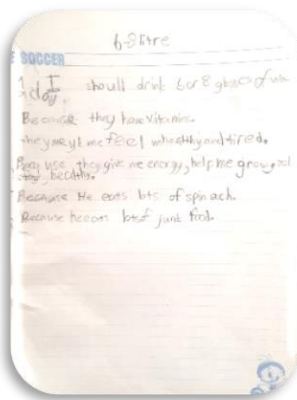 SOCCER
I should drink 6 or 8 glasses of
day
Because they have vitamins.
they me feel and tired.
they give me energy, help me grow, and
stay healthy.
Because He eats lots of spinach.
Because he eats lots of junk food.